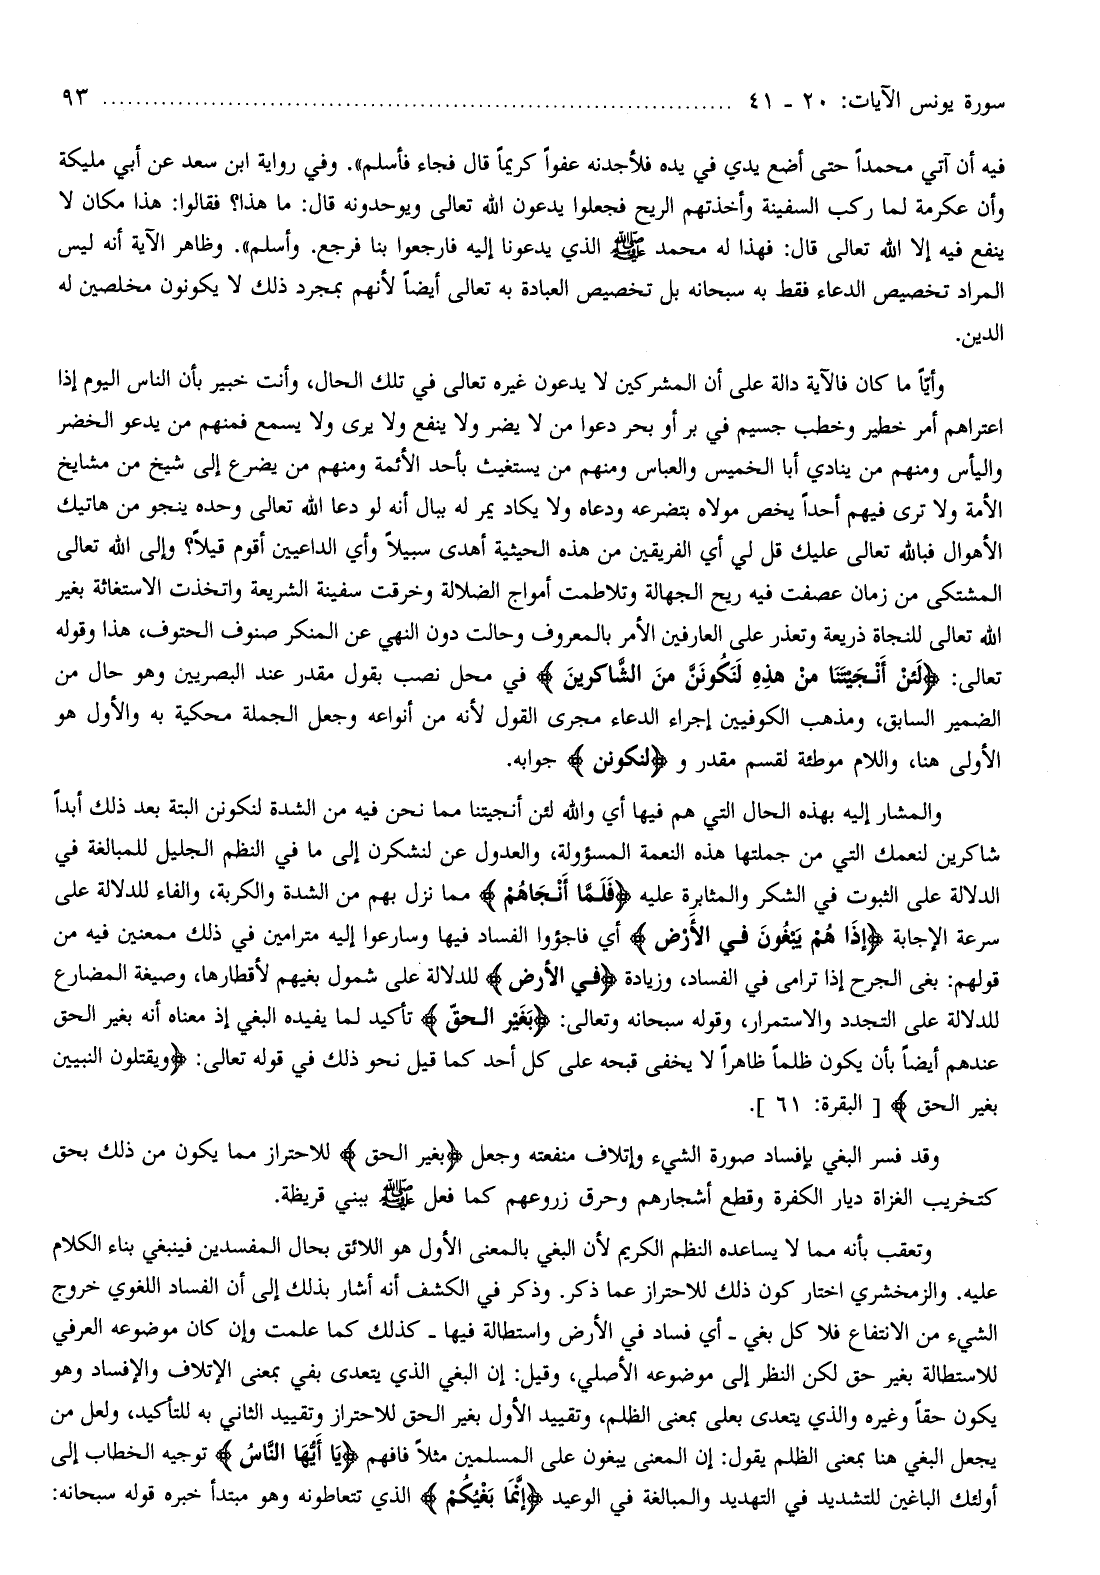 سورة يونس الآيات: ٢٠ - ٤١ ........................................................................... ٩٣
فيه أن آتي محمداً حتى أضع يدي في يده فلأجدنه عفواً كريماً قال فجاء فأسلم». وفي رواية ابن سعد عن أبي مليكة
وأن عكرمة لما ركب السفينة وأخذتهم الريح فجعلوا يدعون الله تعالى ويوحدونه قال: ما هذا؟ فقالوا: هذا مكان لا
ينفع فيه إلا الله تعالى قال: فهذا له محمد ﷺ الذي يدعونا إليه فارجعوا بنا فرجع. وأسلم». وظاهر الآية أنه ليس
المراد تخصيص الدعاء فقط به سبحانه بل تخصيص العبادة به تعالى أيضاً لأنهم بمجرد ذلك لا يكونون مخلصين له
الدين.
وأيّاً ما كان فالآية دالة على أن المشركين لا يدعون غيره تعالى في تلك الحال، وأنت خبير بأن الناس اليوم إذا
اعتراهم أمر خطير وخطب جسيم في بر أو بحر دعوا من لا يضر ولا ينفع ولا يرى ولا يسمع فمنهم من يدعو الخضر
واليأس ومنهم من ينادي أبا الخميس والعباس ومنهم من يستغيث بأحد الأئمة ومنهم من يضرع إلى شيخ من مشايخ
الأمة ولا ترى فيهم أحداً يخص مولاه بتضرعه ودعاه ولا يكاد يمر له ببال أنه لو دعا الله تعالى وحده ينجو من هاتيك
الأهوال فبالله تعالى عليك قل لي أي الفريقين من هذه الحيثية أهدى سبيلاً وأي الداعيين أقوم قيلاً؟ وإلى الله تعالى
المشتكى من زمان عصفت فيه ريح الجهالة وتلاطمت أمواج الضلالة وخرقت سفينة الشريعة واتخذت الاستغاثة بغير
الله تعالى للنجاة ذريعة وتعذر على العارفين الأمر بالمعروف وحالت دون النهي عن المنكر صنوف الحتوف، هذا وقوله
تعالى: ﴿لَئنْ أَنْـجَيْتَنَا منْ هذِهِ لَنَكُونَنَّ منَ الشَّاكرينَ﴾ في محل نصب بقول مقدر عند البصريين وهو حال من
الضمير السابق، ومذهب الكوفيين إجراء الدعاء مجرى القول لأنه من أنواعه وجعل الجملة محكية به والأول هو
الأولى هنا، واللام موطئة لقسم مقدر و ﴿لنكونن﴾ جوابه.
والمشار إليه بهذه الحال التي هم فيها أي والله لئن أنجيتنا مما نحن فيه من الشدة لنكونن البتة بعد ذلك أبداً
شاكرين لنعمك التي من جملتها هذه النعمة المسؤولة، والعدول عن لنشكرن إلى ما في النظم الجليل للمبالغة في
الدلالة على الثبوت في الشكر والمثابرة عليه ﴿فَلَمَّا أَنْـجَاهُمْ﴾ مما نزل بهم من الشدة والكربة، والفاء للدلالة على
سرعة الإجابة ﴿إذَا هُمْ يَبْغُونَ فـي الأَرْض﴾ أي فاجؤوا الفساد فيها وسارعوا إليه مترامين في ذلك ممعنين فيه من
قولهم: بغى الجرح إذا ترامى في الفساد، وزيادة ﴿فـي الأرض﴾ للدلالة على شمول بغيهم لأقطارها، وصيغة المضارع
للدلالة على التجدد والاستمرار، وقوله سبحانه وتعالى: ﴿بَغَيْر الـحقّ﴾ تأكيد لما يفيده البغي إذ معناه أنه بغير الحق
عندهم أيضاً بأن يكون ظلماً ظاهراً لا يخفى قبحه على كل أحد كما قيل نحو ذلك في قوله تعالى: ﴿ويقتلون النبيين
بغير الحق﴾ [ البقرة: ٦١ ].
وقد فسر البغي بإفساد صورة الشيء وإتلاف منفعته وجعل ﴿بغير الحق﴾ للاحتراز مما يكون من ذلك بحق
كتخريب الغزاة ديار الكفرة وقطع أشجارهم وحرق زروعهم كما فعل ﷺ ببني قريظة.
وتعقب بأنه مما لا يساعده النظم الكريم لأن البغي بالمعنى الأول هو اللائق بحال المفسدين فينبغي بناء الكلام
عليه. والزمخشري اختار كون ذلك للاحتراز عما ذكر. وذكر في الكشف أنه أشار بذلك إلى أن الفساد اللغوي خروج
الشيء من الانتفاع فلا كل بغي - أي فساد في الأرض واستطالة فيها - كذلك كما علمت وإن كان موضوعه العرفي
للاستطالة بغير حق لكن النظر إلى موضوعه الأصلي، وقيل: إن البغي الذي يتعدى بفي بمعنى الإتلاف والإفساد وهو
يكون حقاً وغيره والذي يتعدى بعلى بمعنى الظلم، وتقييد الأول بغير الحق للاحتراز وتقييد الثاني به للتأكيد، ولعل من
يجعل البغي هنا بمعنى الظلم يقول: إن المعنى يبغون على المسلمين مثلاً فافهم ﴿يَا أَيُّهَا النَّاسُ﴾ توجيه الخطاب إلى
أولئك الباغين للتشديد في التهديد والمبالغة في الوعيد ﴿إنَّمَا بَغْيُكُمْ﴾ الذي تتعاطونه وهو مبتدأ خبره قوله سبحانه: